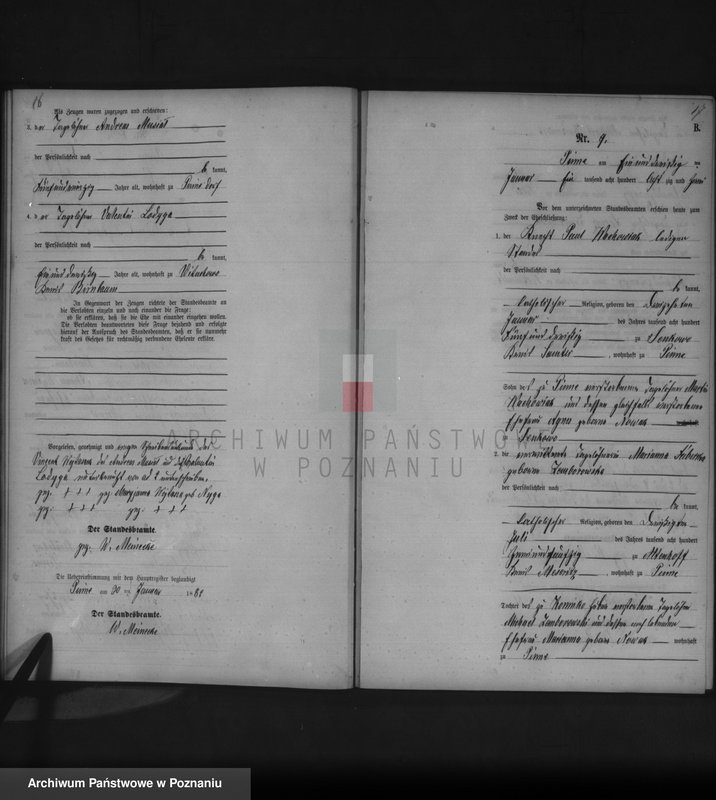 16
Als Zeugen waren zugezogen und erschienen:
3. der Tagelöhner Andreas Musial
der Persönlichkeit nach
be kannt,
fünfundvierzig Jahre alt, wohnhaft zu Pinne Dorf
4. der Tagelöhner Valentin Lodyga
der Persönlichkeit nach
be kannt,
ein und dreißig Jahre alt, wohnhaft zu
Kreis Birnbaum
In Gegenwart der Zeugen richtete der Standesbeamte an
die Verlobten einzeln und nach einander die Frage:
ob sie erklären, daß sie die Ehe mit einander eingehen wollen.
Die Verlobten beantworteten diese Frage bejahend und erfolgte
hierauf der Ausspruch des Standesbeamten, daß er sie nunmehr
kraft des Gesetzes für rechtmäßig verbundene Eheleute erkläre.
Vorgelesen, genehmigt und wegen Schreibensunkunde des
des Andreas Musial und des Valentin
Lodyga unterkreuzt von
gez. + + + gez. geb.
gez. + + + gez. + + +
Der Standesbeamte.
gez. W. Meinecke
Die Uebereinstimmung mit dem Hauptregister beglaubigt
Pinne am 30 ten Januar 1881
Der Standesbeamte.
W. Meinecke
17
B.
Nr. 9.
Pinne am ein und dreißig ten
Januar ein tausend acht hundert acht zig und
Vor dem unterzeichneten Standesbeamten erschien heute zum
Zweck der Eheschließung:
1. der Knecht Paul Wachowiak ledigen
Standes
der Persönlichkeit nach
be kannt,
katholischer Religion, geboren den dreizehnten
Januar des Jahres tausend acht hundert
fünf und dreißig zu Senkowo
Kreis Samter, wohnhaft zu Pinne
Sohn des zu Pinne verstorbenen Tagelöhner Martin
Wachowiak und dessen gleichfalls verstorbene
Ehefrau Agnes geborne Nowak wohnhaft
Senkowo
2. die verwittwete Tagelöhnerin Marianna
geborene Zemborowska
der Persönlichkeit nach
be kannt,
katholischer Religion, geboren den dreißigsten
Juli des Jahres tausend acht hundert
zweiundfünfzig zu Altenhoff
Kreis Meseritz, wohnhaft zu Pinne
Tochter des zu verstorbenen Tagelöhner
Michael Zemborowski und dessen noch lebenden
Ehefrau Marianna geborne Nowak wohnhaft
zu Pinne
ARCHIWUM PAŃSTWOWE
W POZNANIU
Archiwum Państwowe w Poznaniu